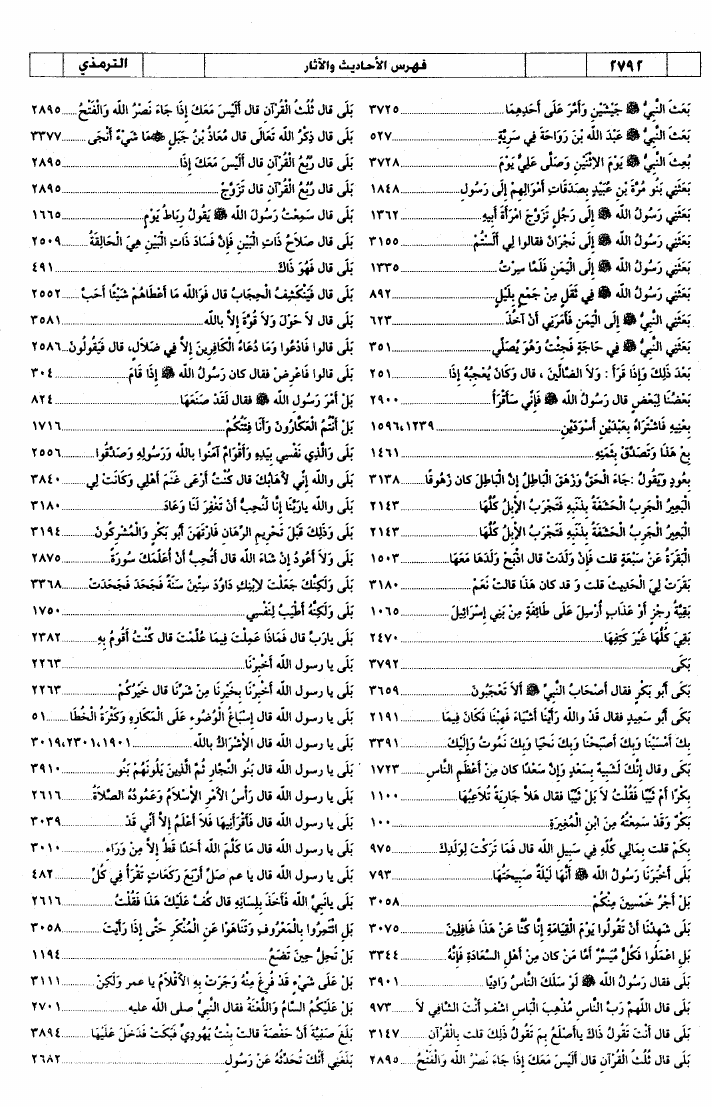 ٢٧٩٢
فهرس الأحاديث والآثار
الترمذي
بَعَثَ النَّبِيُّ ﷺ جَيْشَيْنِ وَأَمَّرَ عَلَى أَحَدِهِمَا ٣٧٢٥
بَعَثَ النَّبِيُّ ﷺ عَبْدَ اللَّه بْنَ رَوَاحَةَ فِي سَرِيَّةٍ ٥٢٧
بُعِثَ النَّبِيُّ ﷺ يَوْمَ الاثْنَيْنِ وَصَلَّى عَلِيٌّ يَوْمَ ٣٧٢٨
بَعَثَنِي بَنُو مُرَّةَ بْنِ عُبَيْدٍ بِصَدَقَاتِ أَمْوَالِهِمْ إِلَى رَسُولِ ١٨٤٨
بَعَثَنِي رَسُولُ اللَّه ﷺ إِلَى رَجُلٍ تَزَوَّجَ امْرَأَةَ أَبِيهِ ١٣٦٢
بَعَثَنِي رَسُولُ اللَّه ﷺ إِلَى نَجْرَانَ فقالوا لِي أَلَسْتُمْ ٣١٥٥
بَعَثَنِي رَسُولُ اللَّه ﷺ إِلَى الْيَمَنِ فَلَمَّا سِرْتُ ١٣٣٥
بَعَثَنِي رَسُولُ اللَّه ﷺ فِي ثَقَلٍ مِنْ جَمْعٍ بِلَيْلٍ ٨٩٢
بَعَثَنِي النَّبِيُّ ﷺ إِلَى الْيَمَنِ فَأَمَرَنِي أَنْ آخُذَ ٦٢٣
بَعَثَنِي النَّبِيُّ ﷺ فِي حَاجَةٍ فَجِئْتُ وَهُوَ يُصَلِّي ٣٥١
بَعْدَ ذَلِكَ وَإِذَا قَرَأَ : وَلاَ الضَّالِّينَ ، قال وَكَانَ يُعْجِبُهُ إِذَا ٢٥١
بَعْضُنَا لِبَعْضٍ قال رَسُولُ اللَّه ﷺ فَإِنِّي سَأَقْرَأُ ٢٩٠٠
بِعْنِيهِ فَاشْتَرَاهُ بِعَبْدَيْنِ أَسْوَدَيْنِ ١٥٩٦،١٢٣٩
بِعْ هَذَا وَتَصَدَّقْ بِثَمَنِهِ ١٤٦١
بِعُودٍ وَيَقُولُ :جَاءَ الْحَقُّ وَزَهَقَ الْبَاطِلُ إِنَّ الْبَاطِلَ كَان زَهُوقًا ٣١٣٨
الْبَعِيرُ الْجَرِبُ الْحَشَفَةُ بِذَنَبِهِ فَتَجْرَبُ الإِبِلُ كُلُّهَا ٢١٤٣
الْبَعِيرُ الْجَرِبُ الْحَشَفَةُ بِذَنَبِهِ فَتَجْرَبُ الإِبِلُ كُلُّهَا ٢١٤٣
الْبَقَرَةُ عَنْ سَبْعَةٍ قلت فَإِنْ وَلَدَتْ قال اذْبَحْ وَلَدَهَا مَعَهَا ١٥٠٣
بَقَرَتْ لِيَ الْحَدِيثَ قلت و قد كان هَذَا قالت نَعَمْ ٣١٨٠
بَقِيَّةُ رِجْزٍ أَوْ عَذَابٍ أُرْسِلَ عَلَى طَائِفَةٍ مِنْ بَنِي إِسْرَائِيلَ ١٠٦٥
بَقِيَ كُلُّهَا غَيْرَ كَتِفِهَا ٢٤٧٠
بَكَى ٣٧٩٢
بَكَى أَبُو بَكْرٍ فقال أَصْحَابُ النَّبِيِّ ﷺ أَلاَ تَعْجَبُونَ ٣٦٥٩
بَكَى أَبُو سَعِيدٍ فقال قَدْ واللَّه رَأَيْنَا أَشْيَاءَ فَهِبْنَا فَكَانَ فِيمَا ٢١٩١
بِكَ أَمْسَيْنَا وَبِكَ أَصْبَحْنَا وَبِكَ نَحْيَا وَبِكَ نَمُوتُ وَإِلَيْكَ ٣٣٩١
بَكَى وقال إِنَّكَ لَشَبِيهٌ بِسَعْدٍ وَإِنَّ سَعْدًا كان مِنْ أَعْظَمِ النَّاسِ ١٧٢٣
بِكْرًا أَمْ ثَيِّبًا فَقُلْتُ لاَ بَلْ ثَيِّبًا فقال هَلاَّ جَارِيَةً تُلاَعِبُهَا ١١٠٠
بَكْرٌ وَقَدْ سَمِعْتُهُ مِنَ ابْنِ الْمُغِيرَةِ ١٠٠
بِكَمْ قلت بِمَالِي كُلِّهِ فِي سَبِيلِ اللَّه قال فَمَا تَرَكْتَ لِوَلَدِكَ ٩٧٥
بَلَى أَخْبَرَنَا رَسُولُ اللَّه ﷺ أَنَّهَا لَيْلَةٌ صَبِيحَتُهَا ٧٩٣
بَلْ أَجْرُ خَمْسِينَ مِنْكُمْ ٣٠٥٨
بَلَى شَهِدْنَا أَنْ تَقُولُوا يَوْمَ الْقِيَامَةِ إِنَّا كُنَّا عَنْ هَذَا غَافِلِينَ ٣٠٧٥
بَلِ اعْمَلُوا فَكُلٌّ مُيَسَّرٌ أَمَّا مَنْ كان مِنْ أَهْلِ السَّعَادَةِ فَإِنَّهُ ٣٣٤٤
بَلَى فقال رَسُولُ اللَّه ﷺ لَوْ سَلَكَ النَّاسُ وَادِيًا ٣٩٠١
بَلَى قال اللهم رَبَّ النَّاسِ مُذْهِبَ الْبَاسِ اشْفِ أَنْتَ الشَّافِي لاَ ٩٧٣
بَلَى قال أَنْتَ تَقُولُ ذَاكَ يَاأَصْلَعُ بِمَ تَقُولُ ذَلِكَ قلت بِالْقُرْآنِ ٣١٤٧
بَلَى قال ثُلُثُ الْقُرْآنِ قال أَلَيْسَ مَعَكَ إِذَا جَاءَ نَصْرُ اللَّه وَالْفَتْحُ ٢٨٩٥
بَلَى قال ثُلُثُ الْقُرْآنِ قال أَلَيْسَ مَعَكَ إِذَا جَاءَ نَصْرُ اللَّه وَالْفَتْحُ ٢٨٩٥
بَلَى قال ذِكْرُ اللَّه تَعَالَى قال مُعَاذُ بْنُ جَبَلٍ ﷺ مَا شَيْءٌ أَنْجَى ٣٣٧٧
بَلَى قال رُبُعُ الْقُرْآنِ قال أَلَيْسَ مَعَكَ إِذَا ٢٨٩٥
بَلَى قال رُبُعُ الْقُرْآنِ قال تَزَوَّجْ ٢٨٩٥
بَلَى قال سَمِعْتُ رَسُولَ اللَّه ﷺ يَقُولُ رِبَاطُ يَوْمٍ ١٦٦٥
بَلَى قال صَلاَحُ ذَاتِ الْبَيْنِ فَإِنَّ فَسَادَ ذَاتِ الْبَيْنِ هِيَ الْحَالِقَةُ ٢٥٠٩
بَلَى قال فَهُوَ ذَاكَ ٤٩١
بَلَى قال فَيَنْكَشِفُ الْحِجَابُ قال فَوَاللَّه مَا أَعْطَاهُمْ شَيْئًا أَحَبَّ ٢٥٥٢
بَلَى قال لاَ حَوْلَ وَلاَ قُوَّةَ إِلاَّ بِاللَّه ٣٥٨١
بَلَى قالوا فَادْعُوا وَمَا دُعَاءُ الْكَافِرِينَ إِلاَّ فِي ضَلاَلٍ، قال فَيَقُولُونَ ٢٥٨٦
بَلَى قالوا فَاعْرِضْ فقال كان رَسُولُ اللَّه ﷺ إِذَا قَامَ ٣٠٤
بَلْ أَمْرَ رَسُولِ اللَّه ﷺ فقال لَقَدْ صَنَعَهَا ٨٢٤
بَلْ أَنْتُمُ الْعَكَّارُونَ وَأَنَا فِئَتُكُمْ ١٧١٦
بَلَى وَالَّذِي نَفْسِي بِيَدِهِ وَأَقْوَامٌ آمَنُوا بِاللَّه وَرَسُولِهِ وَصَدَّقُوا ٢٥٥٦
بَلَى واللَّه إِنِّي لأَهَابُكَ قال كُنْتُ أَرْعَى غَنَمَ أَهْلِي وَكَانَتْ لِي ٣٨٤٠
بَلَى واللَّه يَارَبَّنَا إِنَّا لَنُحِبُّ أَنْ تَغْفِرَ لَنَا وَعَادَ ٣١٨٠
بَلَى وَذَلِكَ قَبْلَ تَحْرِيمِ الرِّهَانِ فَارْتَهَنَ أَبُو بَكْرٍ وَالْمُشْرِكُونَ ٣١٩٤
بَلَى وَلاَ أَعُودُ إِنْ شَاءَ اللَّه قال أَتُحِبُّ أَنْ أُعَلِّمَكَ سُورَةً ٢٨٧٥
بَلَى وَلَكِنَّكَ جَعَلْتَ لابْنِكِ دَاوُدَ سِتِّينَ سَنَةً فَجَحَدَ فَجَحَدَتْ ٣٣٦٨
بَلَى وَلَكِنَّهُ أَطْيَبُ لِنَفْسِي ١٧٥٠
بَلَى يارَبِّ قال فَمَاذَا عَمِلْتَ فِيمَا عُلِّمْتَ قال كُنْتُ أَقُومُ بِهِ ٢٣٨٢
بَلَى يا رسول اللَّه أَخْبِرْنَا ٢٢٦٣
بَلَى يا رسول اللَّه أَخْبِرْنَا بِخَيْرِنَا مِنْ شَرِّنَا قال خَيْرُكُمْ ٢٢٦٣
بَلَى يا رسول اللَّه قال إِسْبَاغُ الْوُضُوءِ عَلَى الْمَكَارِهِ وَكَثْرَةُ الْخُطَا ٥١
بَلَى يا رسول اللَّه قال الإِشْرَاكُ بِاللَّه ٣٠١٩،٢٣٠١،١٩٠١
بَلَى يا رسول اللَّه قال بَنُو النَّجَّارِ ثُمَّ الَّذِينَ يَلُونَهُمْ بَنُو ٣٩١٠
بَلَى يا رسول اللَّه قال رَأْسُ الأَمْرِ الإِسْلاَمُ وَعَمُودُهُ الصَّلاَةُ ٢٦١٦
بَلَى يا رسول اللَّه قال فَأَقْرَأَنِيهَا فَلاَ أَعْلَمُ إِلاَّ أَنِّي قَدْ ٣٠٣٩
بَلَى يا رسول اللَّه قال مَا كَلَّمَ اللَّه أَحَدًا قَطُّ إِلاَّ مِنْ وَرَاءِ ٣٠١٠
بَلَى يا رسول اللَّه قال يا عم صَلِّ أَرْبَعَ رَكَعَاتٍ تَقْرَأُ فِي كُلِّ ٤٨٢
بَلَى يانَبِيَّ اللَّه فَأَخَذَ بِلِسَانِهِ قال كُفَّ عَلَيْكَ هَذَا فَقُلْتُ ٢٦١٦
بَلِ ائْتَمِرُوا بِالْمَعْرُوفِ وَتَنَاهَوْا عَنِ الْمُنْكَرِ حَتَّى إِذَا رَأَيْتَ ٣٠٥٨
بَلْ تَحِلُّ حِينَ تَضَعُ ١١٩٤
بَلْ عَلَى شَيْءٍ قَدْ فُرِغَ مِنْهُ وَجَرَتْ بِهِ الأَقْلاَمُ يا عمر وَلَكِنْ ٣١١١
بَلْ عَلَيْكُمُ السَّامُ وَاللَّعْنَةُ فقال النَّبِيُّ صلى اللَّه عليه ٢٧٠١
بَلَغَ صَفِيَّةَ أَنَّ حَفْصَةَ قالت بِنْتُ يَهُودِيٍّ فَبَكَتْ فَدَخَلَ عَلَيْهَا ٣٨٩٤
بَلَغَنِي أَنَّكَ تُحَدِّثُهُ عَنْ رَسُولِ ٢٦٨٢